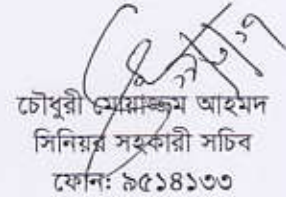 চৌধুরী মোয়াজ্জম আহমদ
সিনিয়র সহকারী সচিব
ফোন: ৯৫১৪১৩৩